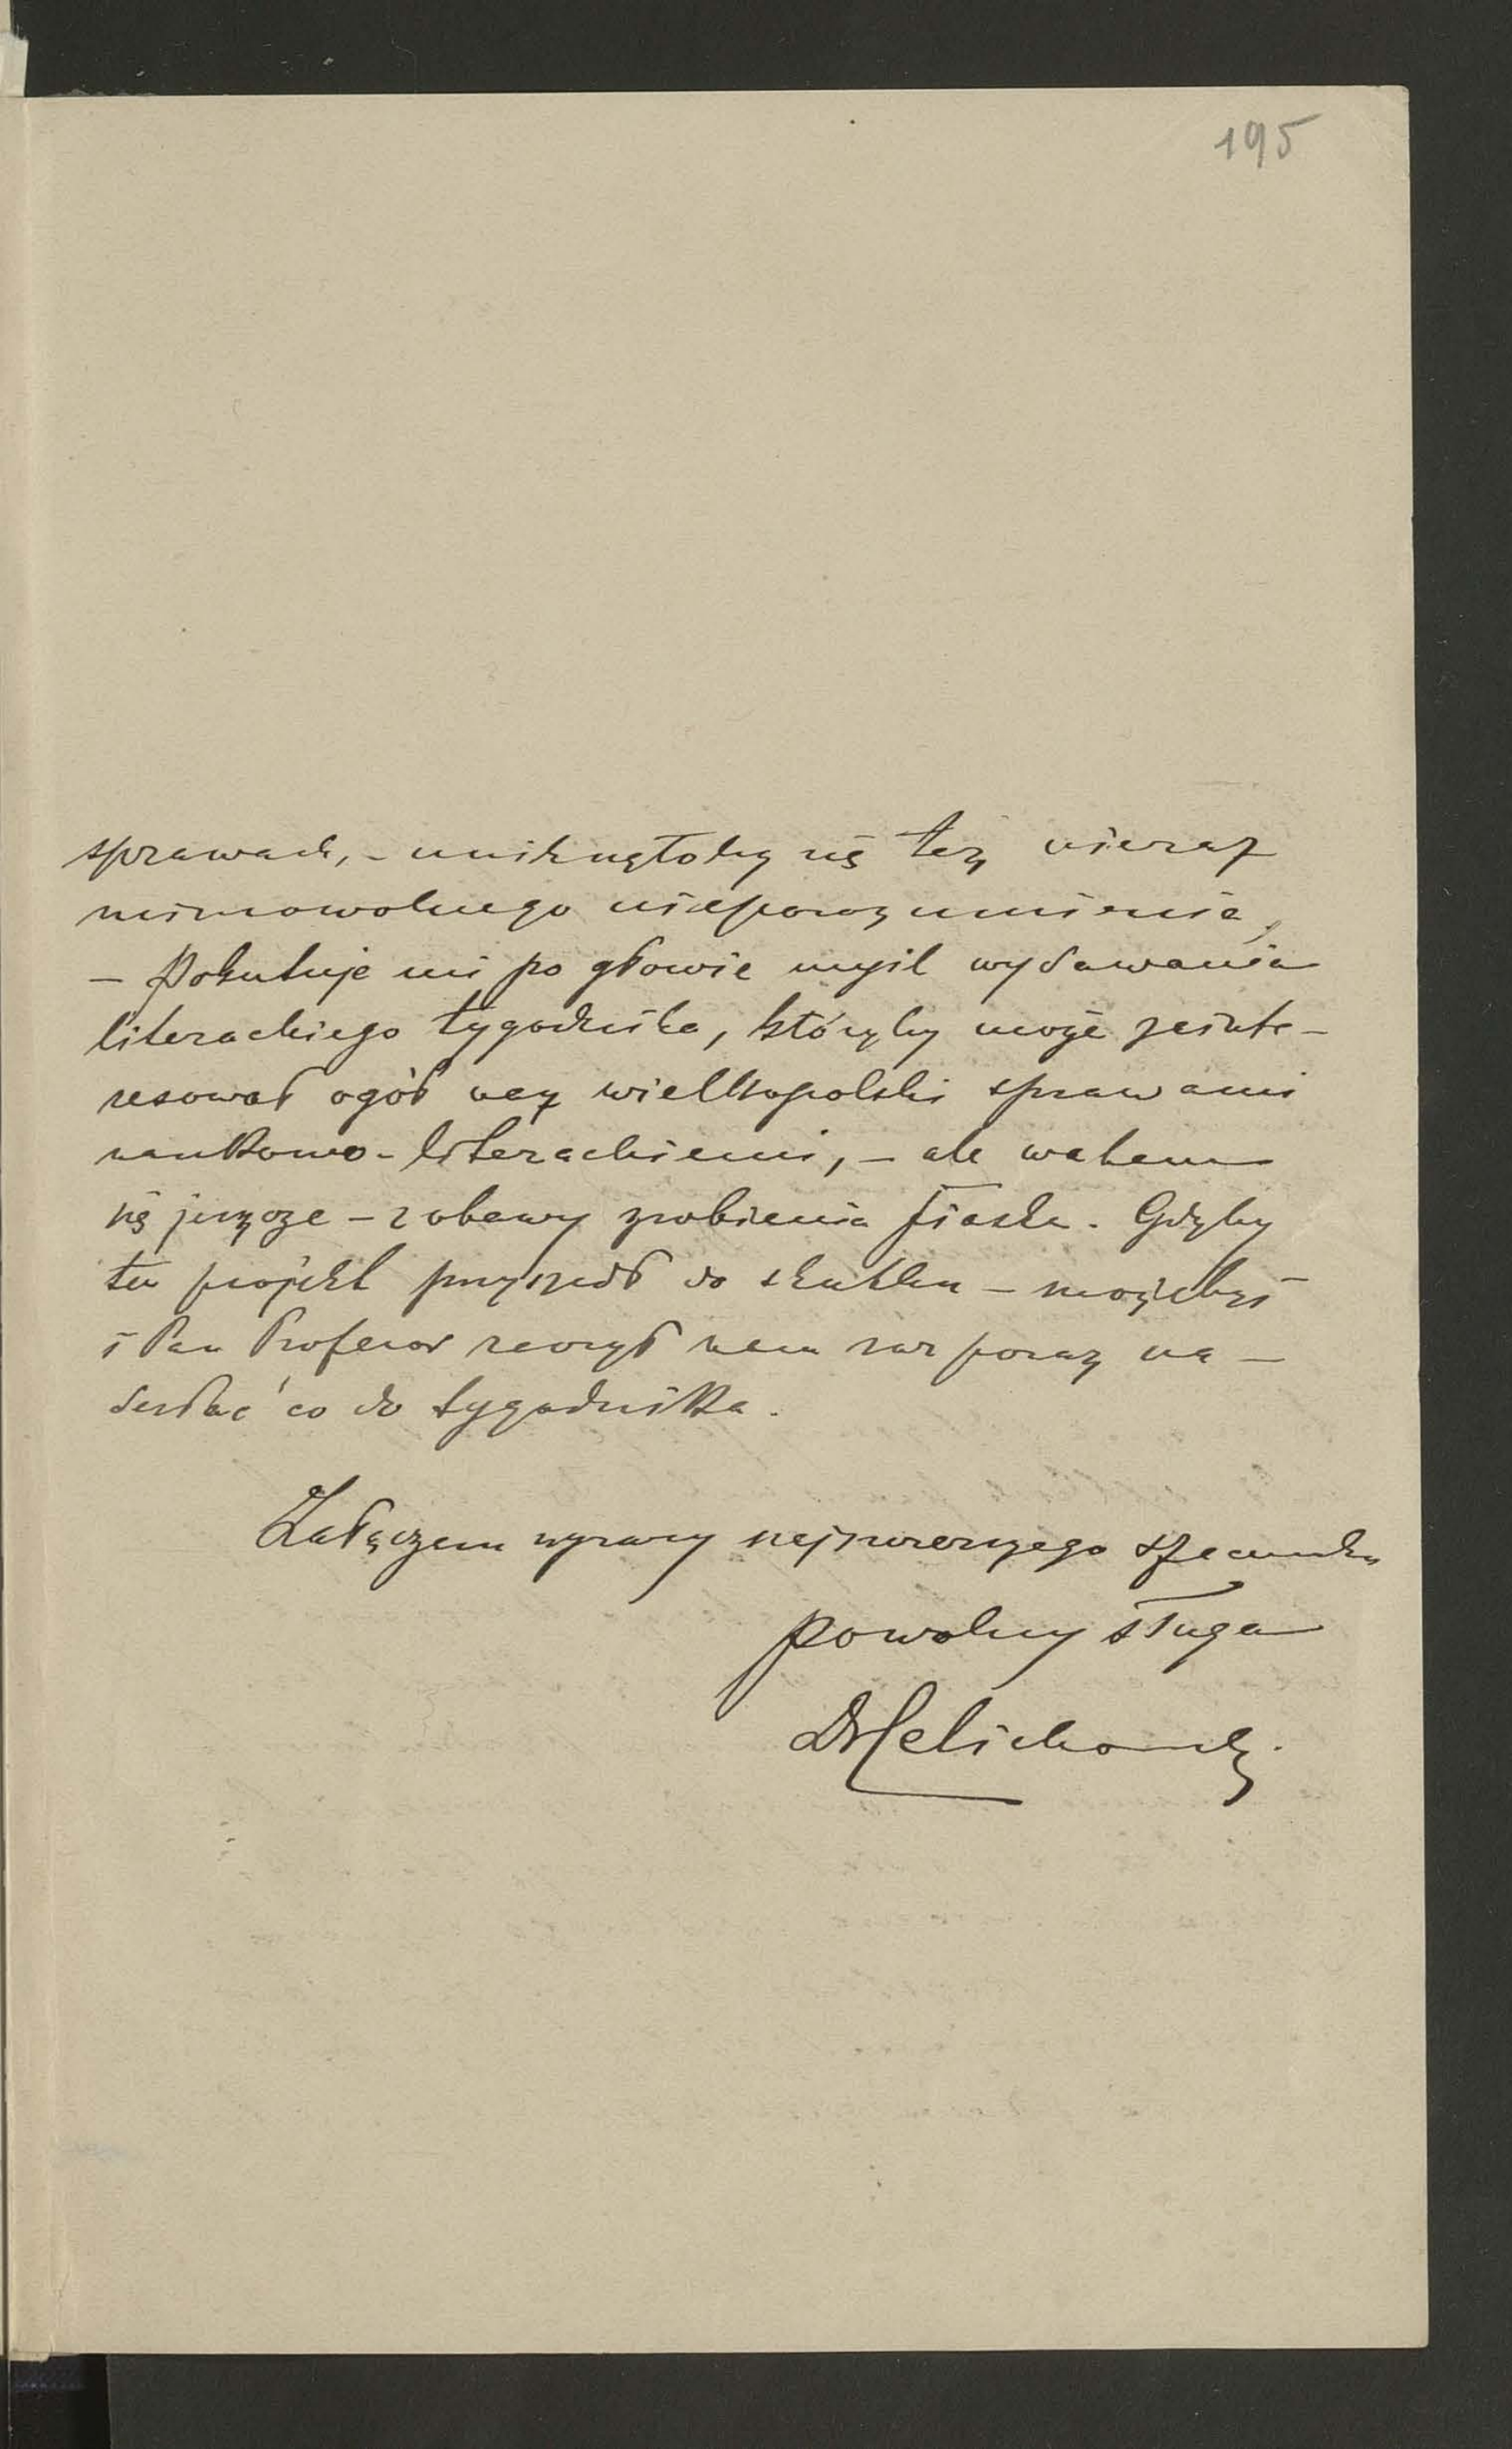 195
sprawach, – uniknęłoby się też nieraz
mimowolnego nieporozumienia,
– Pokutuje mi po głowie myśl wydawania
literackiego tygodnika, któryby może zainte-
resował ogół nasz wielkopolski sprawami
naukowo-literackiemi, – ale waham
się jeszcze – z obawy zrobienia fiaska. Gdyby
ten projekt przyszedł do skutku – możebyś
i Pan Profesor raczył nam raz poraz na-
desłać co do tygodnika.
Załączam wyrazy najszczerszego szacunku
powolny sługa
Dr Celichowski.